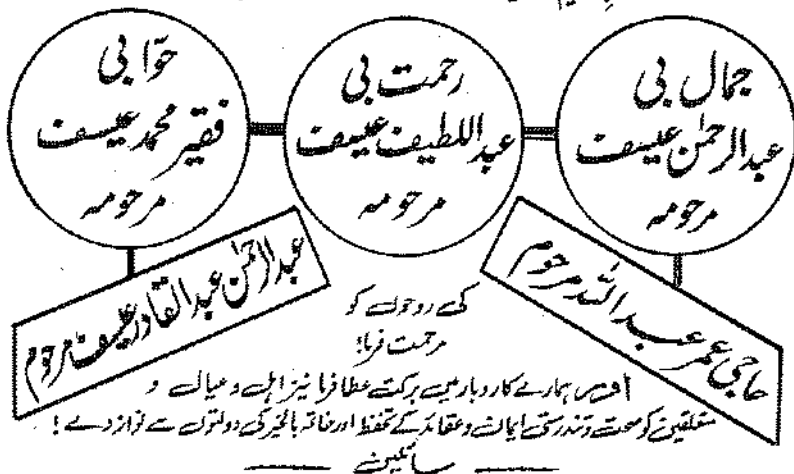 جمال بی
عبدالرحمٰن عیسف
مرحومہ
رحمت بی
عبداللطیف عیسف
مرحومہ
حوّا بی
فقیر محمد عیسف
مرحومہ
حاجی عمر عبداللہ مرحوم
عبدالرحمٰن عبدالقادر عیسف مرحوم
کی روحوں کو
مرحمت فرما!
اور ہمارے کاروبار میں برکت عطا فرما نیز اہل و عیال و
متعلقین کو صحت و تندرستی ایمان و عقائد کے تحفظ اور خاتمہ بالخیر کی دولتوں سے نواز دے!
سائلین